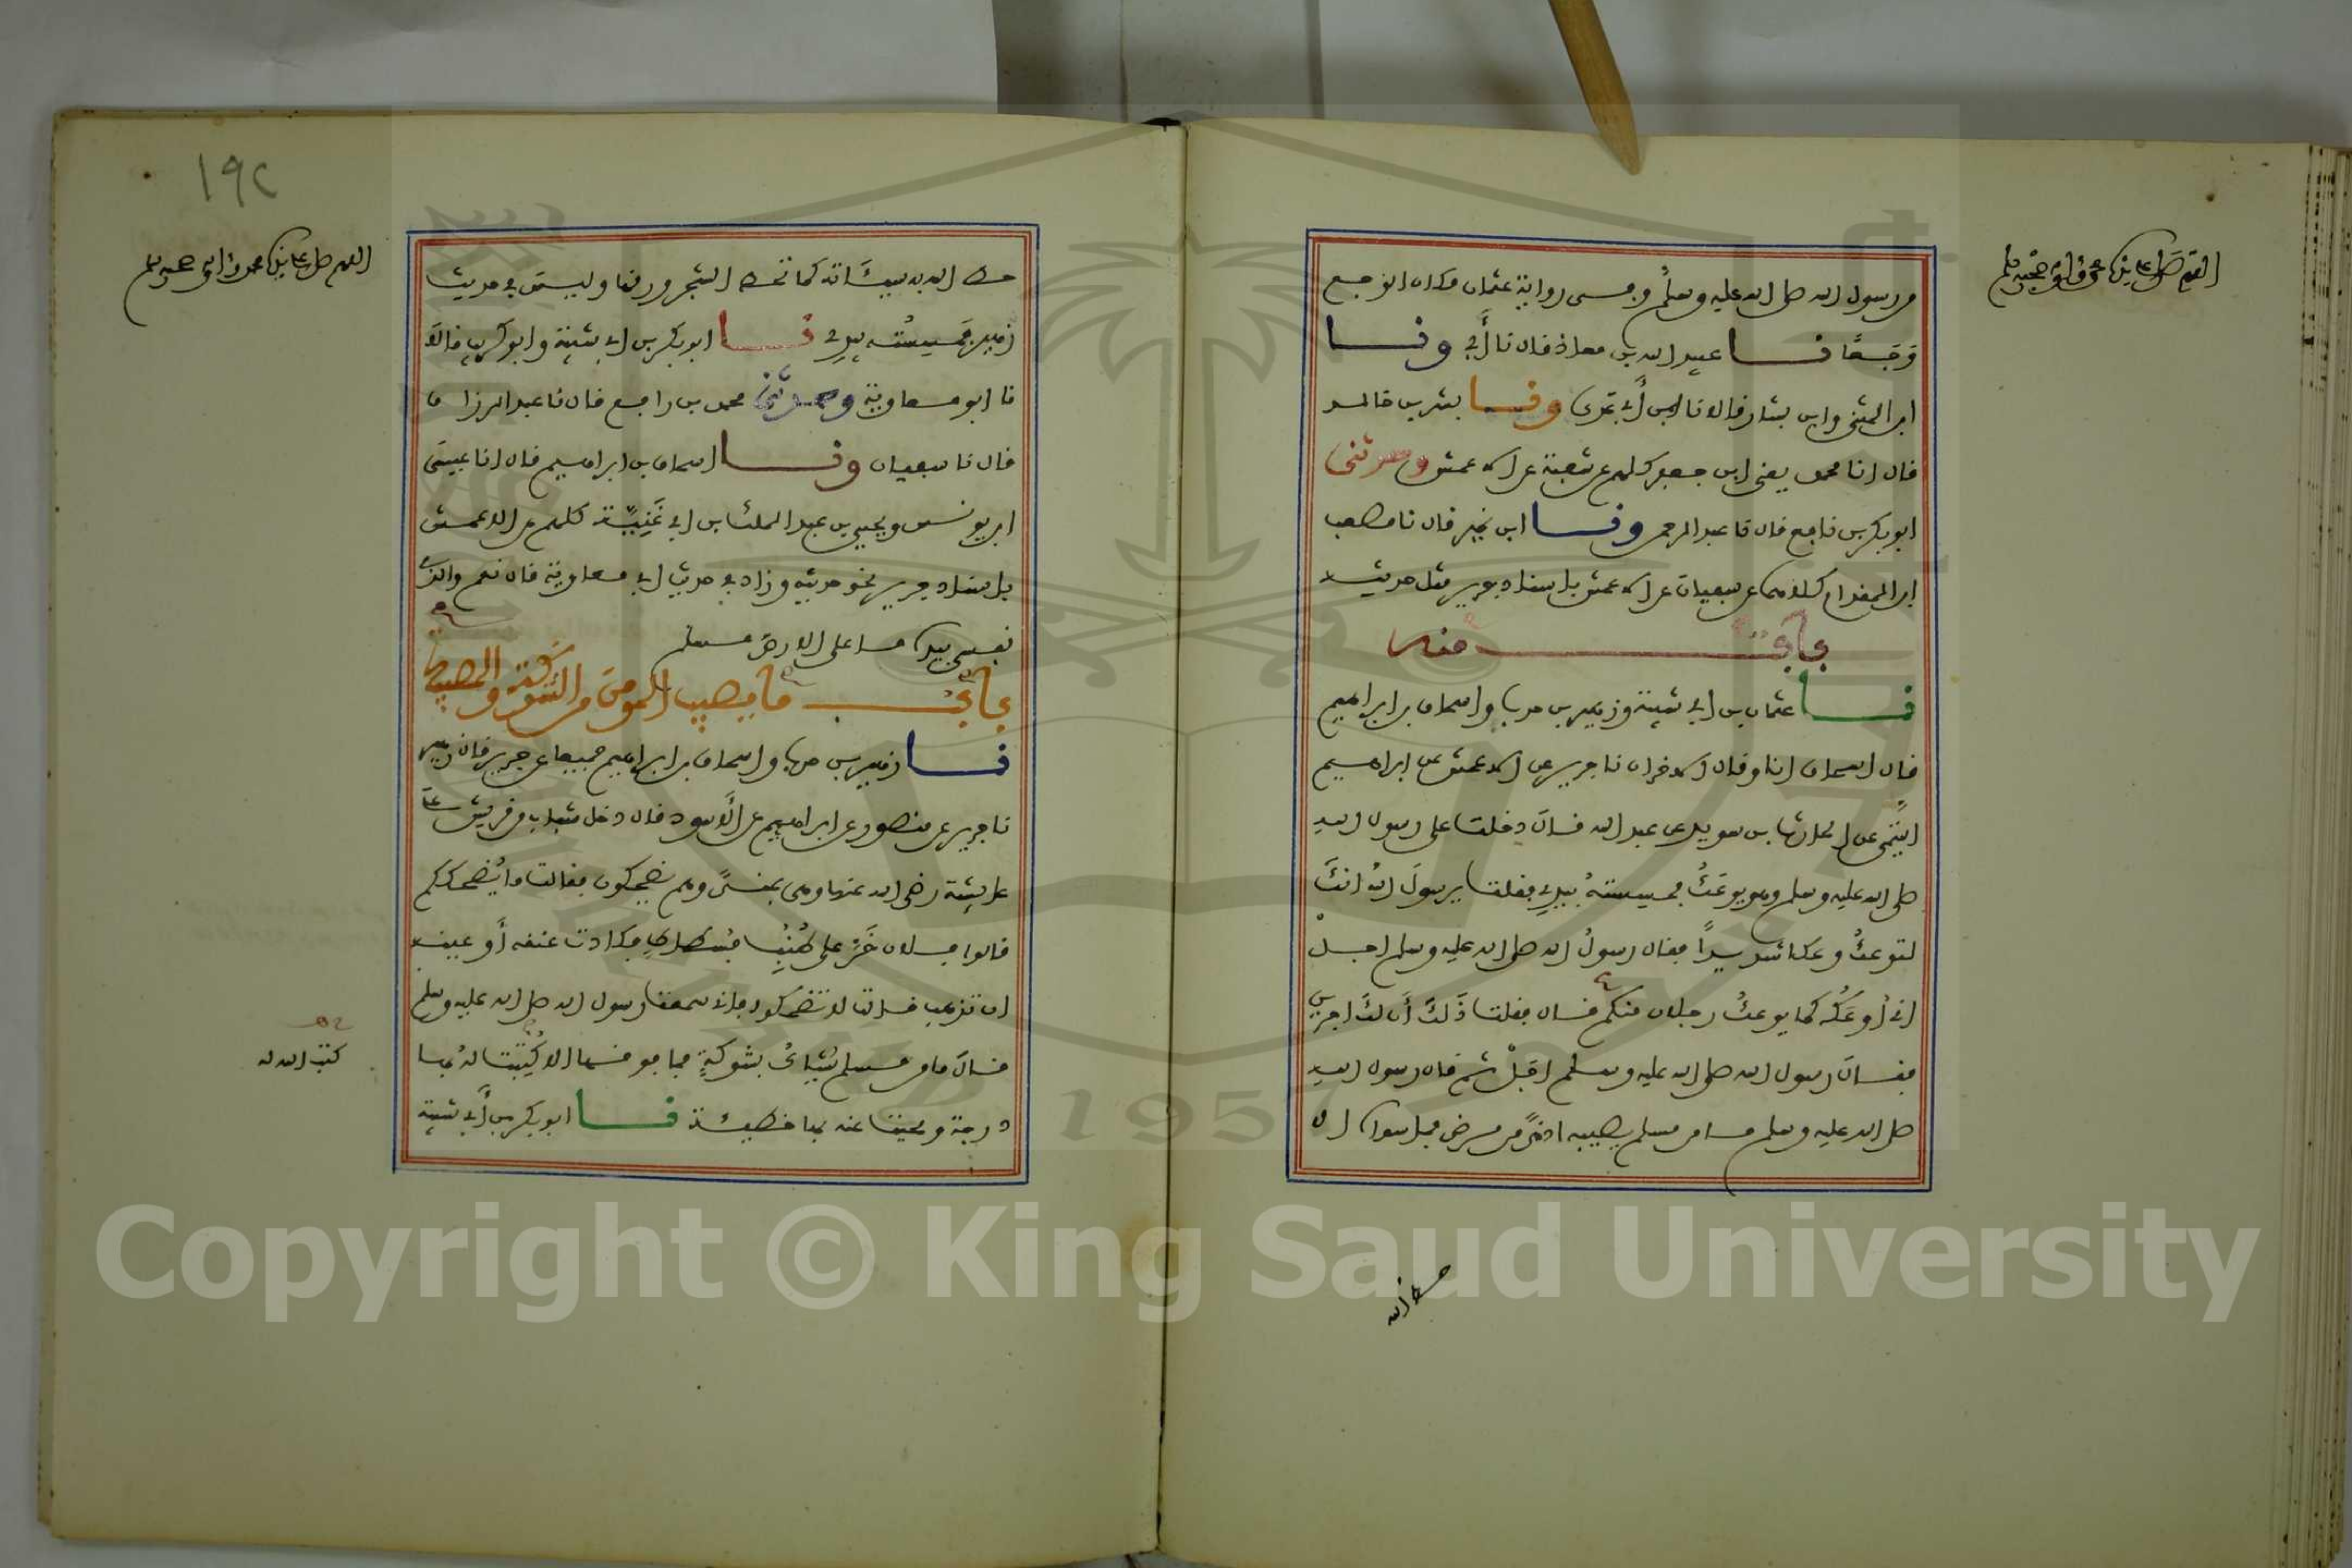 اللهم صل على نبينا محمد وآله وصحبه وسلم
من رسول الله صلى الله عليه وسلم وفي رواية عثمان مكان الوجع
وَجَعًا نا عبيد الله بن معاذ قال نا أبي ونا
ابن المثنى وابن بشار قالا نا ابن أبي عدي ونا بشر بن خالد
قال انا محمد يعني ابن جعفر كلهم عن شعبة عن الاعمش وحدثني
ابو بكر بن نافع قال نا عبد الرحمن ونا ابن نمير قال نا مصعب
ابن المقدام كلاهما عن سفيان عن الاعمش باسناد جرير مثل حديثه
باب منه
نا عثمان بن ابي شيبة وزهير بن حرب واسحاق بن ابراهيم
قال اسحاق انا وقال الاخران نا جرير عن الاعمش عن ابراهيم
التيمي عن الحارث بن سويد عن عبد الله قال دخلت على رسول الله
صلى الله عليه وسلم وهو يوعك فمسسته بيدي فقلت يرسول الله انك
لتوعك وعكا شديدًا فقال رسول الله صلى الله عليه وسلم اجل
اني أوعك كما يوعك رجلان منكم قال فقلت ذلك أن لك اجرين
فقال رسول الله صلى الله عليه وسلم اجل ثم قال رسول الله
صلى الله عليه وسلم ما من مسلم يصيبه اذى من مرض فما سواه الا
١٩٢
اللهم صل على نبينا محمد وآله وصحبه وسلم
حط الله به سيئاته كما تحط الشجر ورقها وليس في حديث
زهير فمسسته بيدي نا ابو بكر بن ابي شيبة وابو كريب قالا
نا ابو معاوية وحدثني محمد بن رافع قال نا عبد الرزاق
قال نا سفيان ونا اسحاق بن ابراهيم قال انا عيسى
ابن يونس ويحيى بن عبد الملك بن ابي غَنِيَّة كلهم عن الاعمش
باسناد جرير نحو حديثه وزاد في حديث ابي معاوية قال نعم والذي
نفسي بيده ما على الارض مسلم
باب ما يصيب المومن من الشوكة والمصيبة
نا زهير بن حرب واسحاق بن ابراهيم جميعا عن جرير قال زهير
نا جرير عن منصور عن ابراهيم عن الأسود قال دخل شباب من قريش على
عايشة رضي الله عنها وهي بمنىً وهم يضحكون فقالت ما يُضحككم
قالوا فلان خَرَّ على طُنُبِ فُسطاطٍ فكادت عنقه أو عينه
ان تذهب قالت لا تضحكوا فاني سمعت رسول الله صلى الله عليه وسلم
قال ما من مسلم يُشاك بشوكةٍ فما فوقها الا كُتِبت له بها
درجة ومحيت عنه بها خطيئة نا ابو بكر بن أبي شيبة
كتب الله له
1957
Copyright © King Saud University